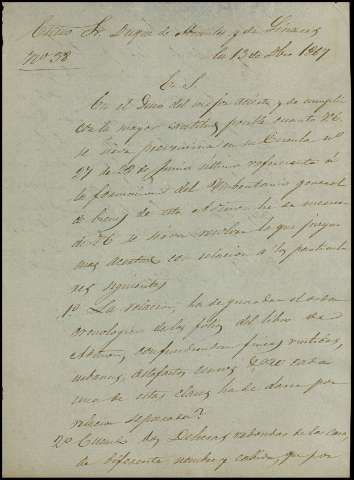 Exmo Sr Duque de Abrantes y de Linares
Nº 58
la 13 de Dbre 1847
E. S.
En el deseo del mejor acierto y de cumplir
con la mayor exactitud posible cuanto V.E.
se sirve prevenirme en su Circular nº
27 de 22 de Junio ultimo referente á
la formacion del Ymbentario general
de bienes de esta Admon he de merecer
de V.E. se sirva resolver lo que juzgue
mas acertado con relacion á los particula
res siguientes
1º La relacion, ha de guardar el orden
cronologico de los folios del libro de
Admon, confundiendo fincas rusticas,
urbanas, artefactos, censos, &ª o cada
una de estas clases ha de darse por
relacion separada?
2º Cuando dos Dehesas redondas de la casa,
de diferente nombre y cabida, que por